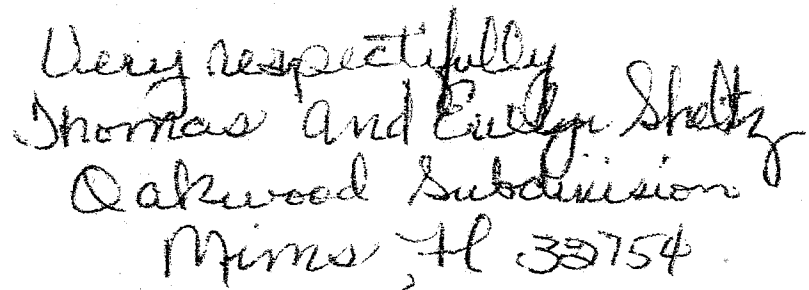 Very respectifully
Thomas and Evelyn Sheltz
Oakwood Subdivision
Mims, Fl 32754